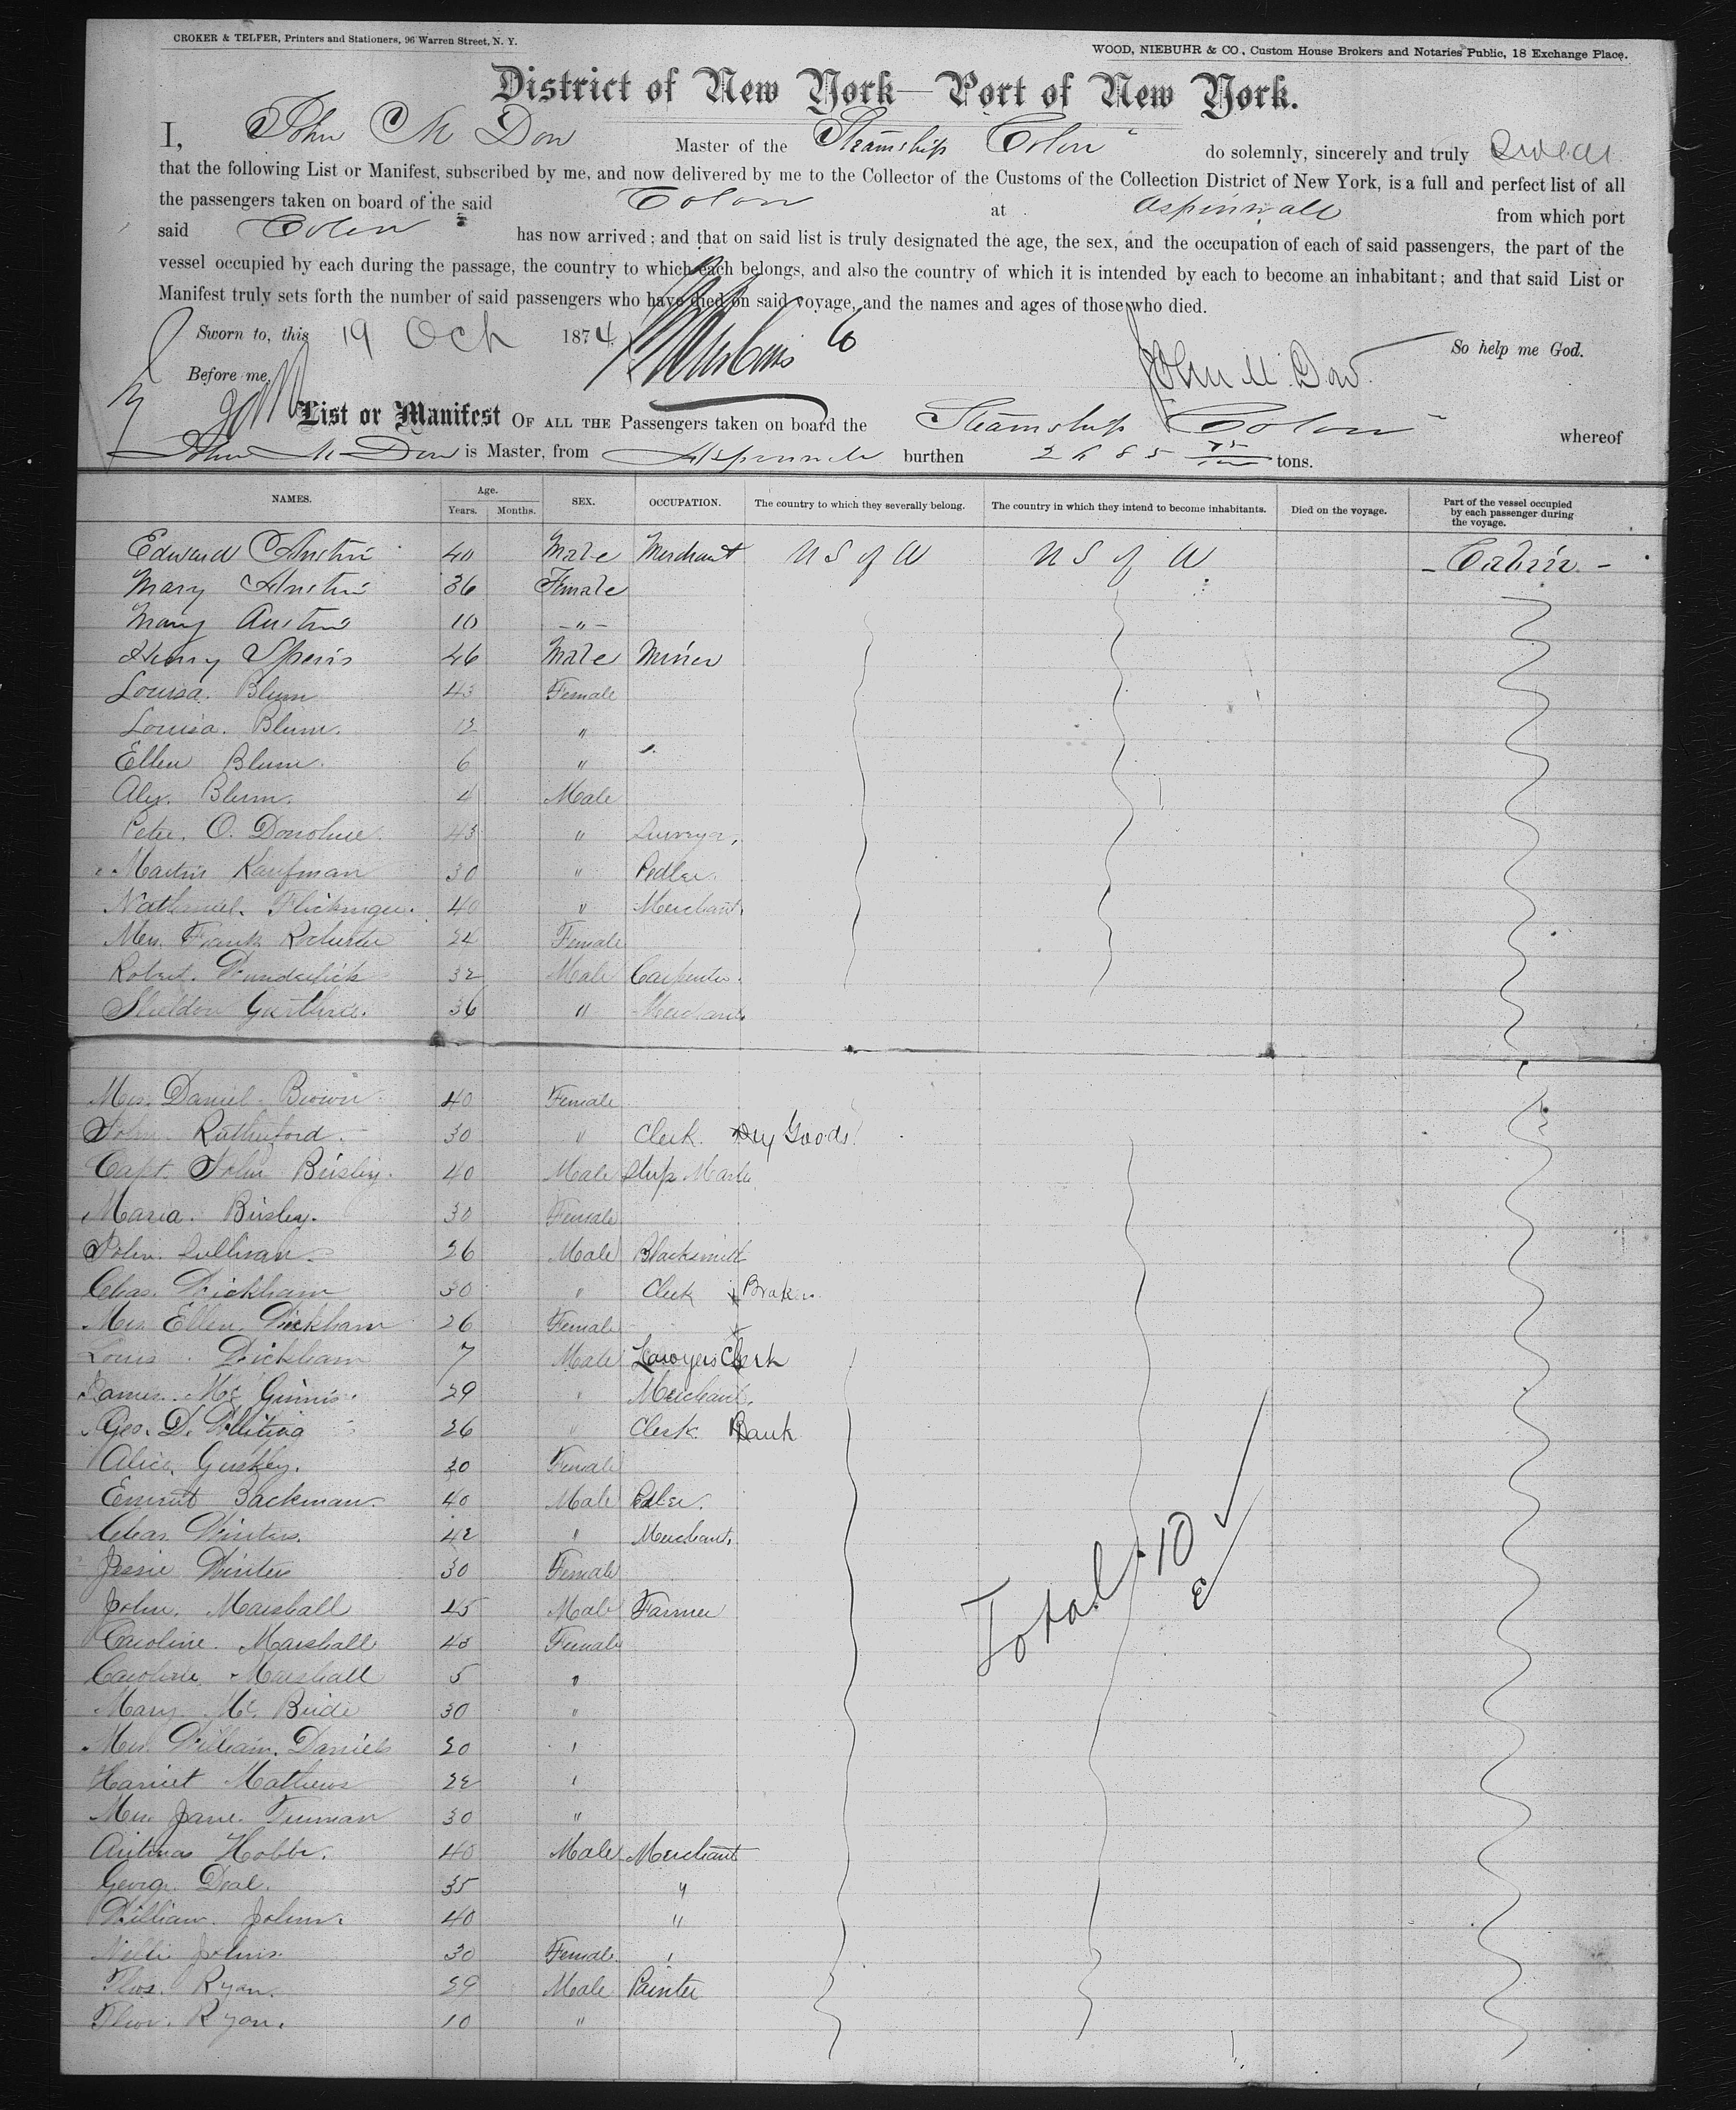 CROKER & TELFER, Printers and Stationers, 96 Warren Street, N. Y.
WOOD, NIEBUHR & CO., Custom House Brokers and Notaries Public, 18 Exchange Place.
District of New York—Port of New York.
I, John M Dow Master of the Steamship Colon do solemnly, sincerely and truly swear
that the following List or Manifest, subscribed by me, and now delivered by me to the Collector of the Customs of the Collection District of New York, is a full and perfect list of all
the passengers taken on board of the said Colon at Aspinwall from which port
said Colon has now arrived; and that on said list is truly designated the age, the sex, and the occupation of each of said passengers, the part of the
vessel occupied by each during the passage, the country to which each belongs, and also the country of which it is intended by each to become an inhabitant; and that said List or
Manifest truly sets forth the number of said passengers who have died on said voyage, and the names and ages of those who died.
Sworn to, this 19 Oct 1874 So help me God.
Before me, John M. Dow
List or Manifest OF ALL THE Passengers taken on board the Steamship "Colon" whereof
John M Dow is Master, from Aspinwall burthen 2685 tons.
NAMES. Age. Years. Months. SEX. OCCUPATION. The country to which they severally belong. The country in which they intend to become inhabitants. Died on the voyage. Part of the vessel occupied by each passenger during the voyage.
Edward Austin 40 Male Merchant U S of A U S of A - Cabin -
Mary Austin 36 Female
Mary Austin 10 - " -
Henry Speiss 46 Male Miner
Louisa. Blum 43 Female
Louisa. Blum. 12 "
Ellen Blum. 6 "
Alex. Blum. 4 Male
Peter. O. Donohue. 43 " Surveyor,
Martin Kaufman 30 " Pedler.
Nathaniel. Flickinger. 40 " Merchant.
Mrs. Frank Rochester 24 Female
Robert. Wunderlich 32 Male Carpenter.
Sheldon Guthrie. 36 " Merchant.
Mrs. Daniel Brown 40 Female
John Rutherford. 30 " Clerk. Dry Goods
Capt. John Bursley. 40 Male Ship Master
Maria. Bursley. 30 Female
John. Sullivan. 26 Male Blacksmith
Chas. Wickham 30 " Clerk Broker.
Mrs Ellen. Wickham 26 Female
Louis. Wickham 7 Male Lawyers Clerk
James. Mc Ginnis. 29 " Merchant.
Geo. D. Whiting 26 " Clerk. Bank
Alice, Guskey. 30 Female
Emint Backman. 40 Male Pedler.
Chas. Winters. 42 " Merchant.
Jessie Winters 30 Female
John. Marshall 45 Male Farmer
Caroline. Marshall 43 Female
Caroline. Marshall 5 "
Mary. Mc. Bride 30 "
Mrs. William. Daniels 20 "
Harriet Mathews 22 "
Mrs. Jane. Furman 30 "
Artimas Hobbs. 40 Male Merchant
George. Deal. 35 "
William. Johns. 40 "
Nellie Johns. 30 Female "
Thos. Ryan. 29 Male Painter
Thos. Ryan. 10 "
Total 10